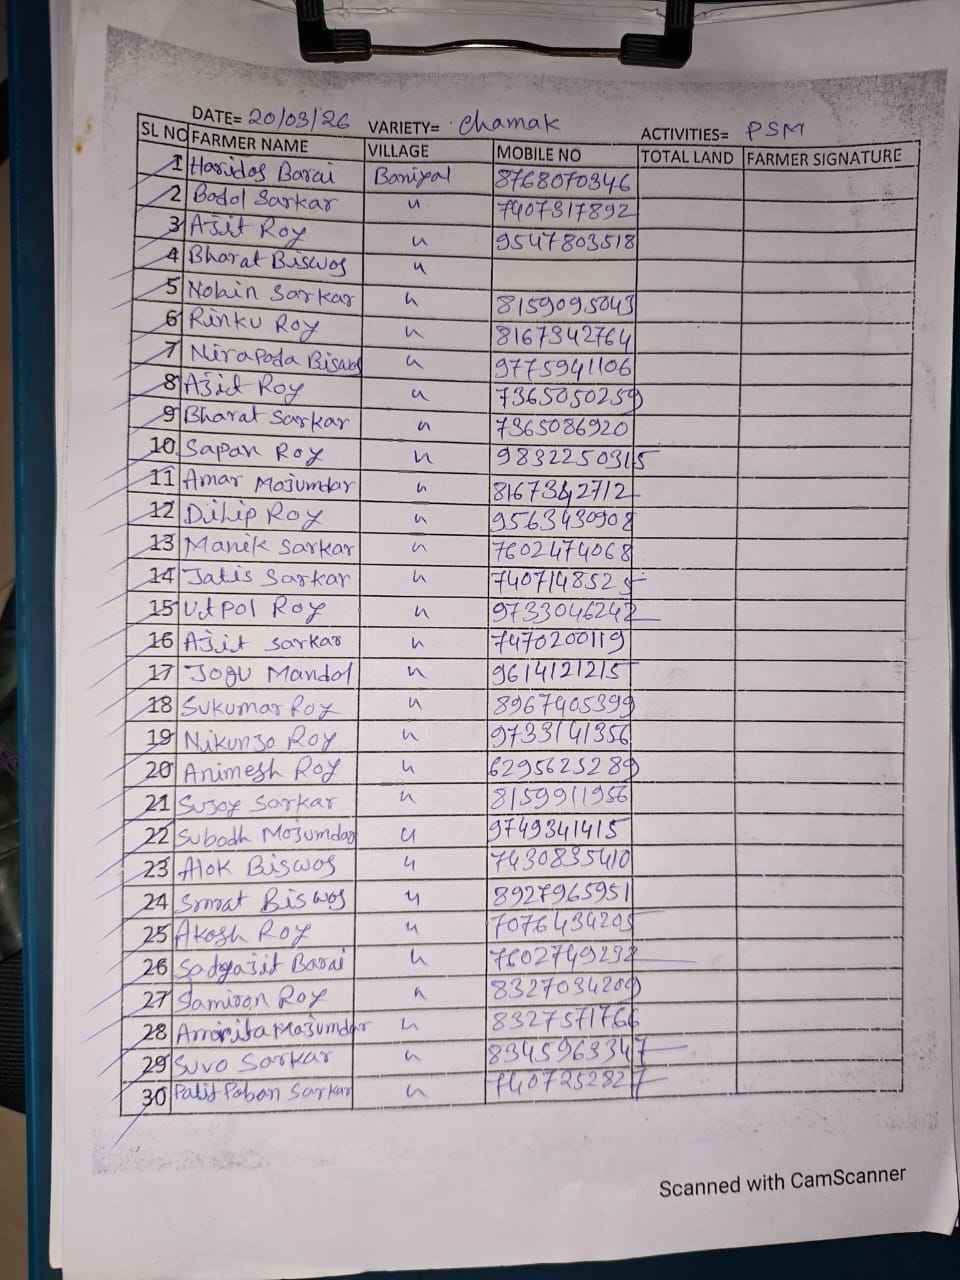 DATE= 20/03/26 VARIETY= Chamak ACTIVITIES= PSM
SL NO FARMER NAME VILLAGE MOBILE NO TOTAL LAND FARMER SIGNATURE
1 Haridas Barai Boniyal 8768070346
2 Badol Sarkar " 7407317892
3 Ajit Roy " 9547803518
4 Bharat Biswos "
5 Nobin Sarkar " 8159095043
6 Rinku Roy " 8167342764
7 Nirapoda Biswos " 9775941106
8 Ajit Roy " 7365050259
9 Bharat Sarkar " 7365086920
10 Sapan Roy " 9832250315
11 Amar Mojumdar " 8167342712
12 Dilip Roy " 9563430908
13 Manik Sarkar " 7602474068
14 Jatis Sarkar " 7407148525
15 Utpol Roy " 9733046242
16 Ajit Sarkar " 7470200119
17 Jogu Mandol " 9614121215
18 Sukumar Roy " 8967405399
19 Nikunjo Roy " 9733141356
20 Animesh Roy " 6295625289
21 Sujoy Sarkar " 8159911956
22 Subodh Mojumdar " 9749341415
23 Alok Biswos " 7430835410
24 Smrat Biswos " 8927965951
25 Akosh Roy " 7076434205
26 Sadyajit Barai " 7602749292
27 Samiron Roy " 8327034209
28 Amrita Mojumdar " 8327571766
29 Suvo Sarkar " 8345963347
30 Patit Paban Sarkar " 7407252827
Scanned with CamScanner